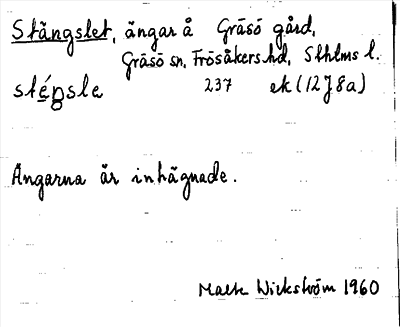 Stängslet, ängar å Gräsö gård,
Gräsö sn, Frösåkers hd, Sthlms l.
sté̱ŋsle 237 ek (12J8a)
Ängarna är inhägnade.
Malte Wickström 1960